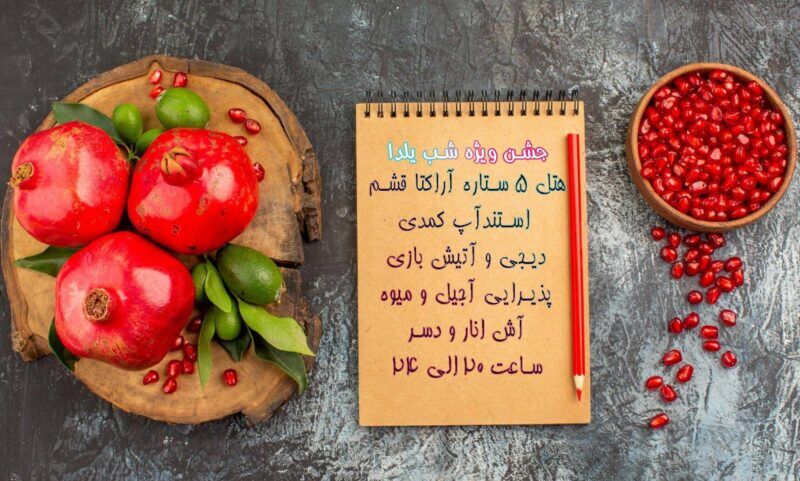 جشن ویژه شب یلدا
هتل ۵ ستاره آراکتا قشم
استندآپ کمدی
دیجی و آتیش بازی
پذیرایی آجیل و میوه
آش انار و دسر
ساعت ۲۰ الی ۲۴